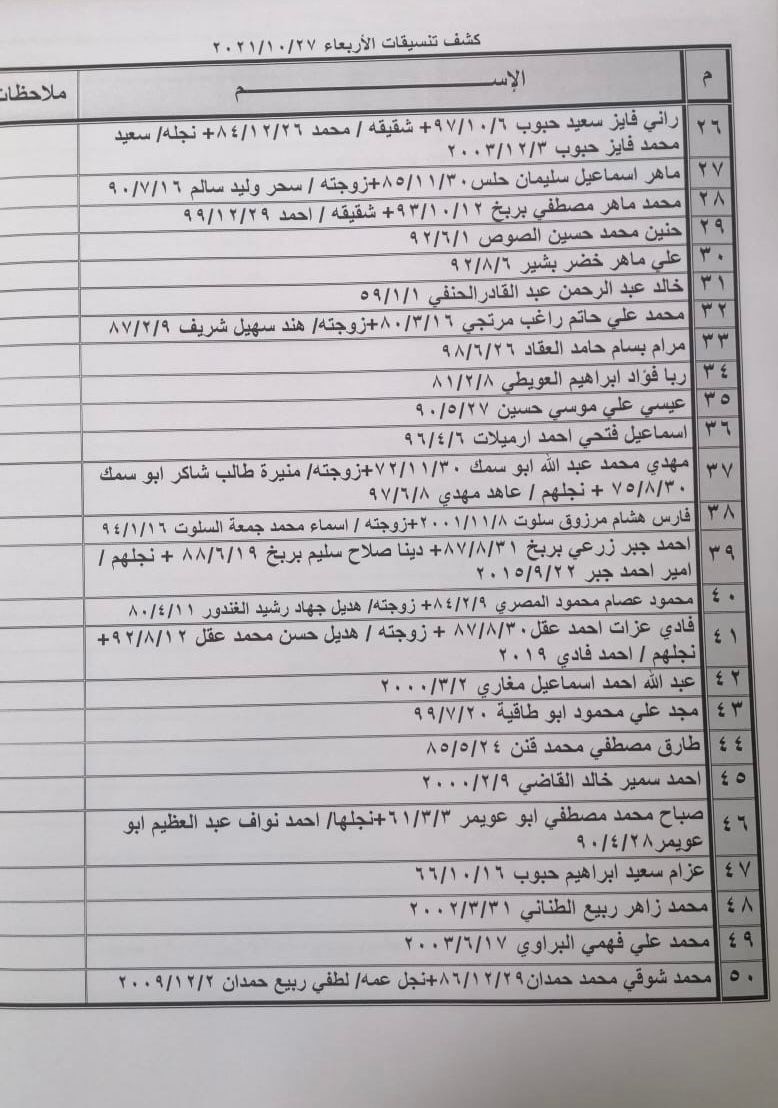 كشف تنسيقات الأربعاء ٢٠٢١/١٠/٢٧
م الإســـــــــــــــــم ملاحظات
٢٦ راني فايز سعيد حبوب ٩٧/١٠/٦+ شقيقه / محمد ٨٤/١٢/٢٦+ نجله/ سعيد
محمد فايز حبوب ٢٠٠٣/١٢/٣
٢٧ ماهر اسماعيل سليمان حلس ٨٥/١١/٣٠+زوجته / سحر وليد سالم ٩٠/٧/١٦
٢٨ محمد ماهر مصطفي بربخ ٩٣/١٠/١٢+ شقيقه / احمد ٩٩/١٢/٢٩
٢٩ حنين محمد حسين الصوص ٩٢/٦/١
٣٠ علي ماهر خضر بشير ٩٢/٨/٦
٣١ خالد عبد الرحمن عبد القادرالحنفي ٥٩/١/١
٣٢ محمد علي حاتم راغب مرتجي ٨٠/٣/١٦+زوجته/ هند سهيل شريف ٨٧/٢/٩
٣٣ مرام بسام حامد العقاد ٩٨/٦/٢٦
٣٤ ربا فؤاد ابراهيم العويطي ٨١/٢/٨
٣٥ عيسي علي موسي حسين ٩٠/٥/٢٧
٣٦ اسماعيل فتحي احمد ارميلات ٩٦/٤/٦
٣٧ مهدي محمد عبد الله ابو سمك ٧٢/١١/٣٠+زوجته/ منيرة طالب شاكر ابو سمك
٧٥/٨/٣٠ + نجلهم / عاهد مهدي ٩٧/٦/٨
٣٨ فارس هشام مرزوق سلوت ٢٠٠١/١١/٨+زوجته / اسماء محمد جمعة السلوت ٩٤/١/١٦
٣٩ احمد جبر زرعي بربخ ٨٧/٨/٣١+ دينا صلاح سليم بربخ ٨٨/٦/١٩ + نجلهم /
امير احمد جبر ٢٠١٥/٩/٢٢
٤٠ محمود عصام محمود المصري ٨٤/٢/٩+ زوجته/ هديل جهاد رشيد الغندور ٨٠/٤/١١
٤١ فادي عزات احمد عقل٨٧/٨/٣٠ + زوجته / هديل حسن محمد عقل ٩٢/٨/١٢+
نجلهم / احمد فادي ٢٠١٩
٤٢ عبد الله احمد اسماعيل مغاري ٢٠٠٠/٣/٢
٤٣ مجد علي محمود ابو طاقية ٩٩/٧/٢٠
٤٤ طارق مصطفي محمد قنن ٨٥/٥/٢٤
٤٥ احمد سمير خالد القاضي ٢٠٠٠/٢/٩
٤٦ صباح محمد مصطفي ابو عويمر ٦١/٣/٣+نجلها/ احمد نواف عبد العظيم ابو
عويمر٩٠/٤/٢٨
٤٧ عزام سعيد ابراهيم حبوب ٦٦/١٠/١٦
٤٨ محمد زاهر ربيع الطناني ٢٠٠٢/٣/٣١
٤٩ محمد علي فهمي البراوي ٢٠٠٣/٦/١٧
٥٠ محمد شوقي محمد حمدان٨٦/١٢/٢٩+نجل عمه/ لطفي ربيع حمدان ٢٠٠٩/١٢/٢